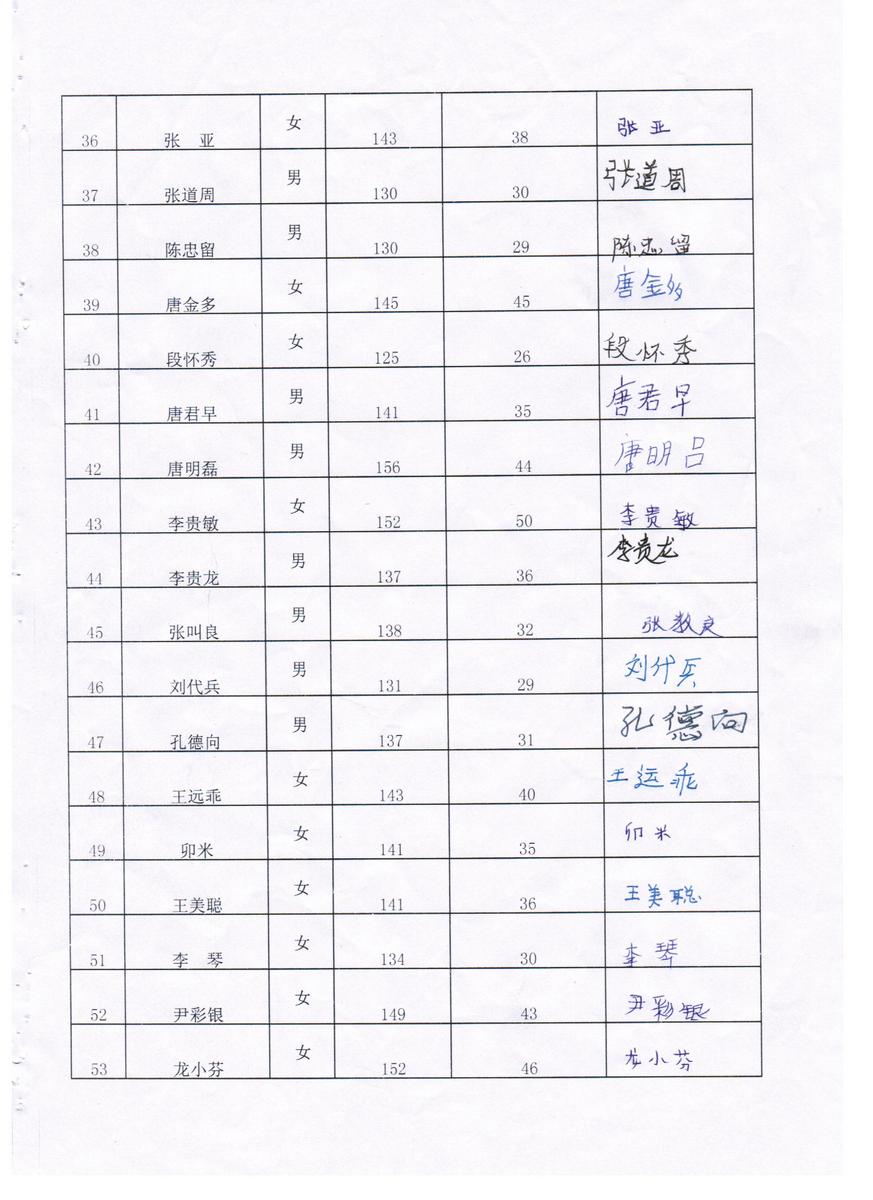 36 张 亚 女 143 38 张 亚
37 张道周 男 130 30 张道周
38 陈忠留 男 130 29 陈忠留
39 唐金多 女 145 45 唐金多
40 段怀秀 女 125 26 段怀秀
41 唐君早 男 141 35 唐君早
42 唐明磊 男 156 44 唐明吕
43 李贵敏 女 152 50 李贵敏
44 李贵龙 男 137 36 李贵龙
45 张叫良 男 138 32 张教良
46 刘代兵 男 131 29 刘代兵
47 孔德向 男 137 31 孔德向
48 王远乖 女 143 40 王运乖
49 卯米 女 141 35 卯米
50 王美聪 女 141 36 王美聪
51 李 琴 女 134 30 李琴
52 尹彩银 女 149 43 尹彩银
53 龙小芬 女 152 46 龙小芬